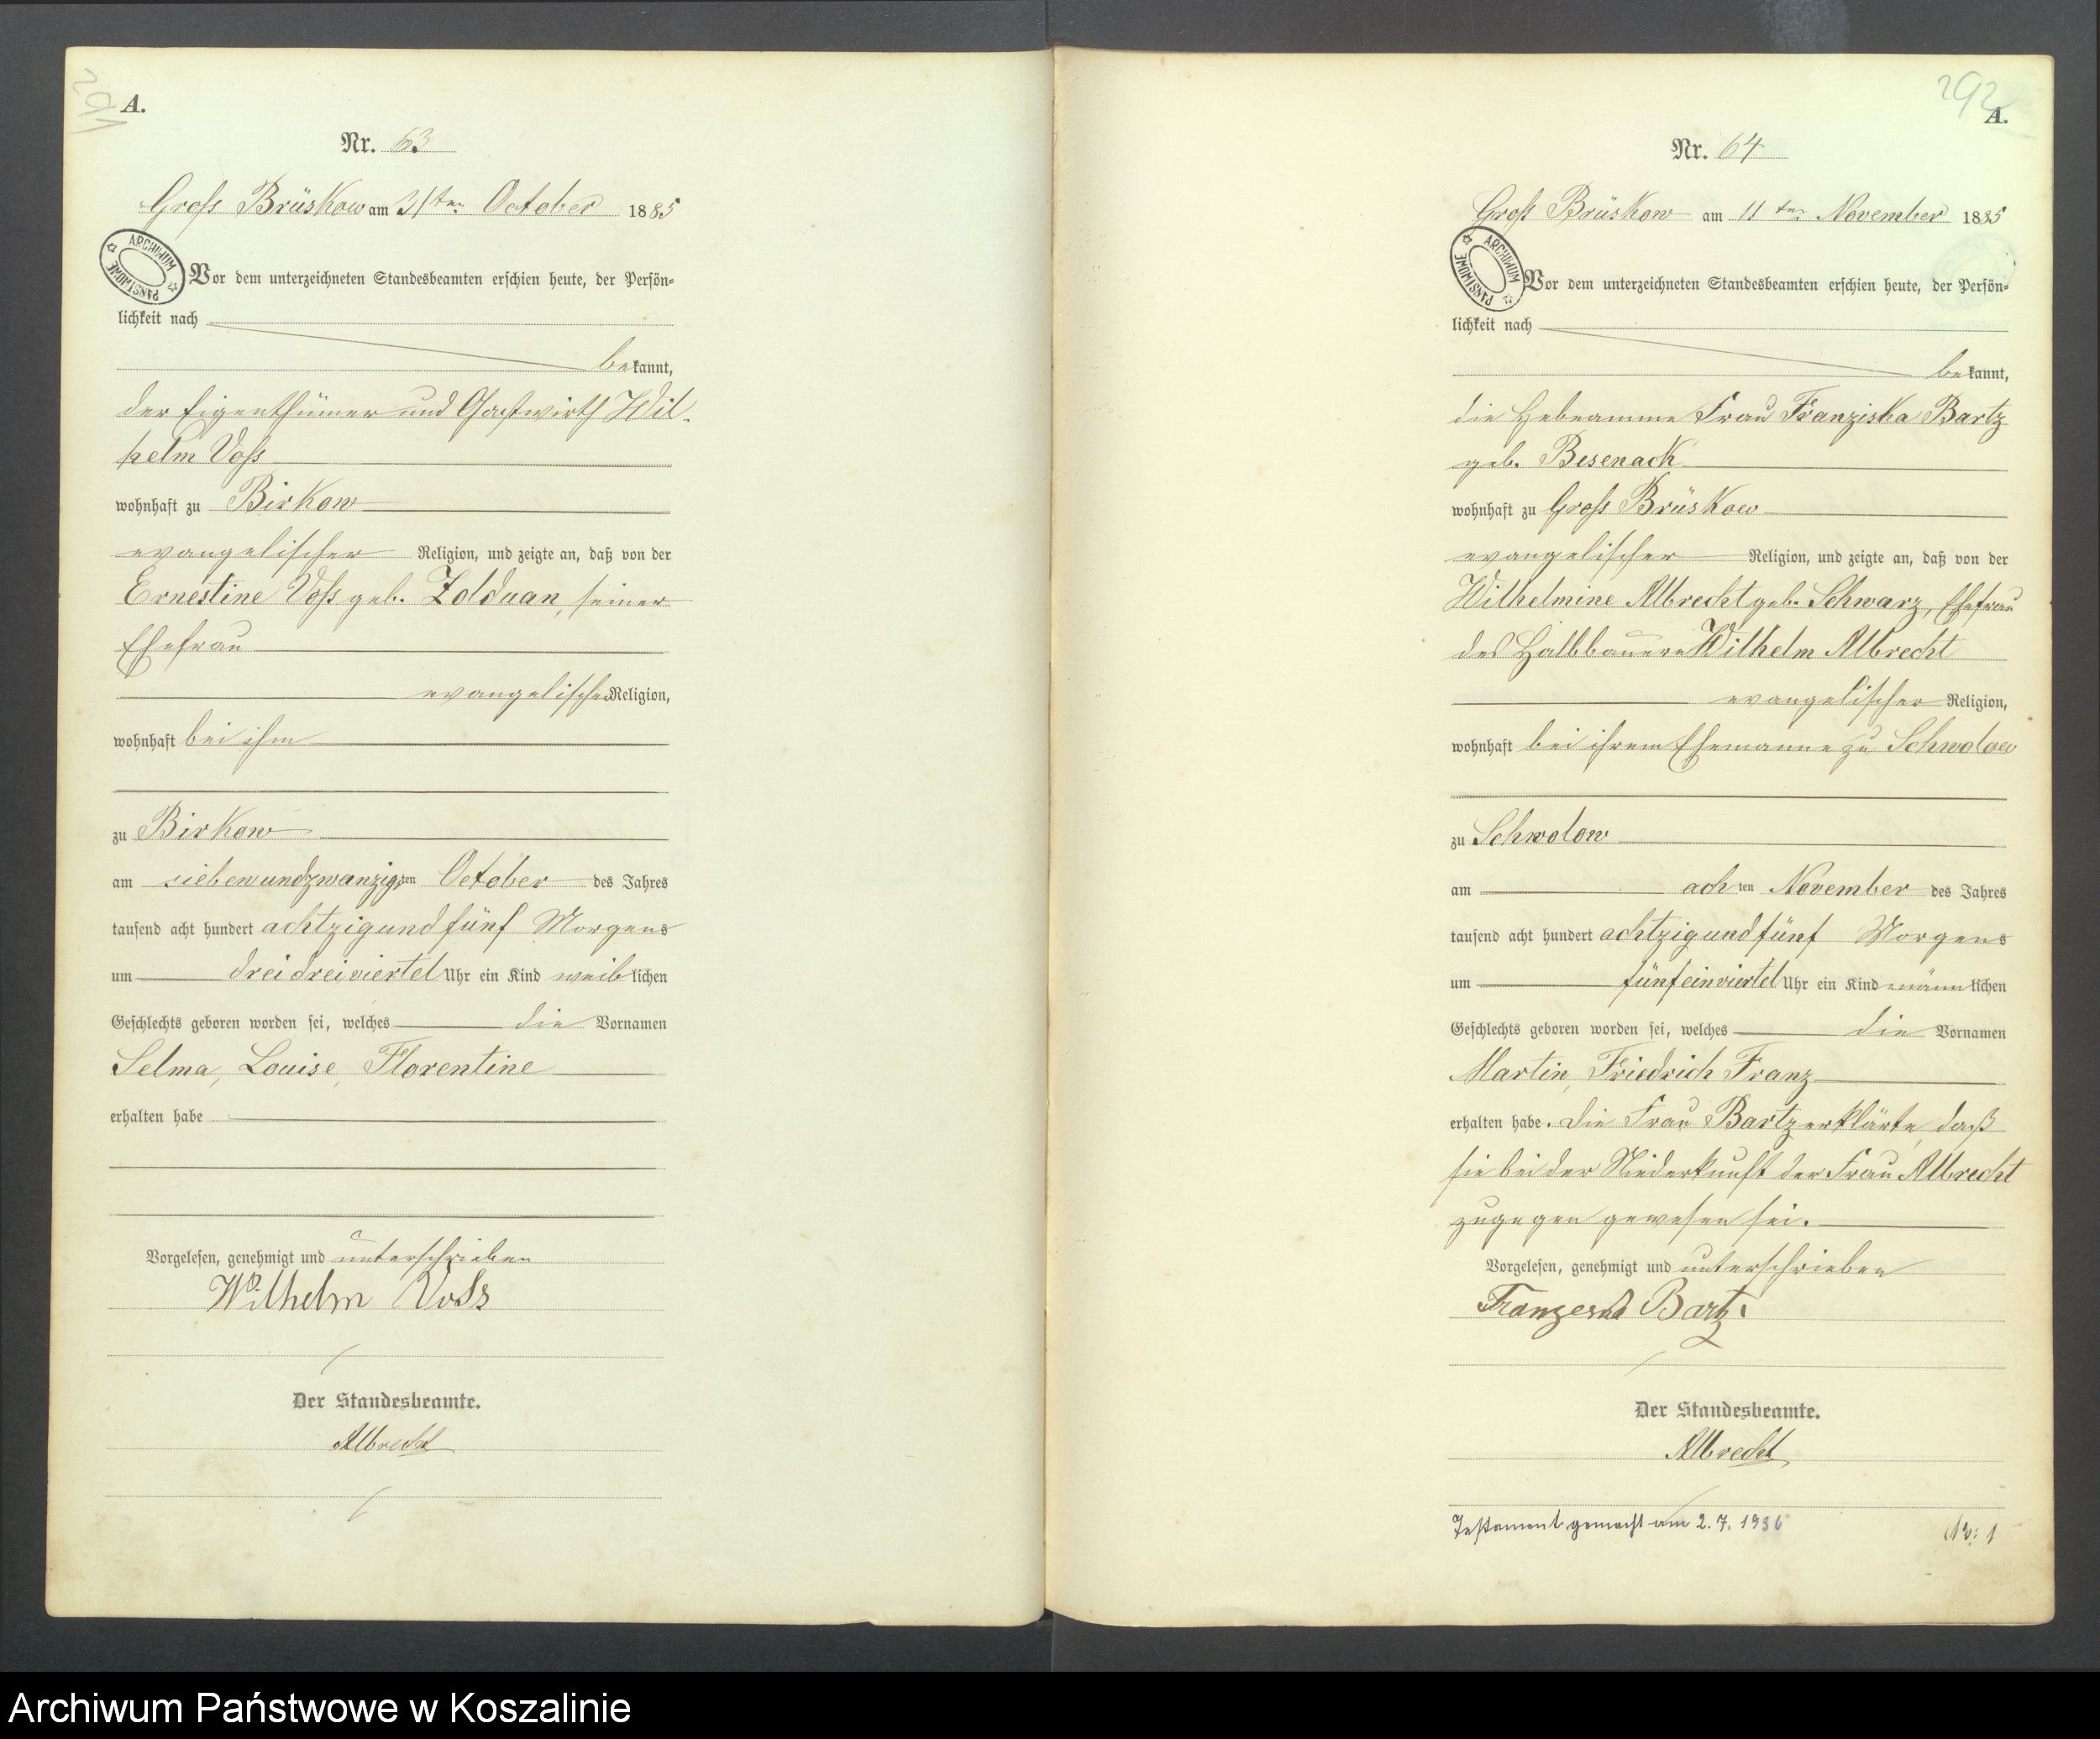 291
A.
Nr. 63
Groß Brüskow am 31ten October 1885
ARCHIWUM PAŃSTWOWE
Vor dem unterzeichneten Standesbeamten erschien heute, der Persön-
lichkeit nach
bekannt,
der Eigenthümer und Gastwirth Wil-
helm Voß
wohnhaft zu Birkow
evangelischer Religion, und zeigte an, daß von der
Ernestine Voß geb. Zolduan, seiner
Ehefrau
evangelischer Religion,
wohnhaft bei ihm
zu Birkow
am siebenundzwanzigsten October des Jahres
tausend acht hundert achtzig und fünf Morgens
um drei dreiviertel Uhr ein Kind weiblichen
Geschlechts geboren worden sei, welches die Vornamen
Selma, Louise, Florentine
erhalten habe
Vorgelesen, genehmigt und unterschrieben
Wilhelm Voss
Der Standesbeamte.
Albrecht
292
A.
Nr. 64
Groß Brüskow am 11ten November 1885
ARCHIWUM PAŃSTWOWE
Vor dem unterzeichneten Standesbeamten erschien heute, der Persön-
lichkeit nach
bekannt,
die Hebeamme Frau Franziska Bartz
geb. Besenack
wohnhaft zu Groß Brüskow
evangelischer Religion, und zeigte an, daß von der
Wilhelmine Albrecht geb. Schwarz, Ehefrau
des Halbbauern Wilhelm Albrecht
evangelischer Religion,
wohnhaft bei ihrem Ehemanne zu Schwolow
zu Schwolow
am achten November des Jahres
tausend acht hundert achtzig und fünf Morgens
um fünf einviertel Uhr ein Kind männlichen
Geschlechts geboren worden sei, welches die Vornamen
Martin, Friedrich Franz
erhalten habe. Die Frau Bartz erklärte, daß
sie bei der Niederkunft der Frau Albrecht
zugegen gewesen sei.
Vorgelesen, genehmigt und unterschrieben
Franzeska Bartz.
Der Standesbeamte.
Albrecht
Testament gemacht am 2. 7. 1936 No: 1
Archiwum Państwowe w Koszalinie